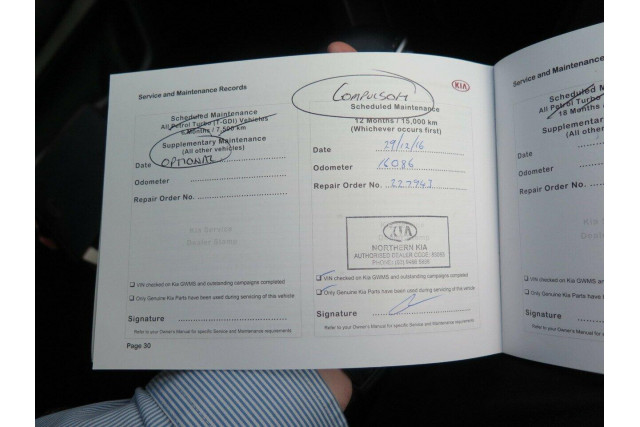 Service and Maintenance Records
Scheduled Maintenance
All Petrol Turbo (T-GDI) Vehicles
6 Months / 7,500 km
Supplementary Maintenance
(All other vehicles)
OPTIONAL
Date
Odometer
Repair Order No.
Kia Service
Dealer Stamp
VIN checked on Kia GWMS and outstanding campaigns completed
Only Genuine Kia Parts have been used during servicing of this vehicle
Signature
Refer to your Owner's Manual for specific Service and Maintenance requirements
Page 30
COMPULSORY
KIA
Scheduled Maintenance
12 Months / 15,000 km
(Whichever occurs first)
Date 29/12/16
Odometer 16086
Repair Order No. 227943
KIA
NORTHERN KIA
AUTHORISED DEALER CODE:
PHONE:
VIN checked on Kia GWMS and outstanding campaigns completed
Only Genuine Kia Parts have been used during servicing of this vehicle
Signature
Refer to your Owner's Manual for specific Service and Maintenance requirements
Service and Maintenance
Scheduled M
All Petrol Turbo
18 Months
Supplementary
(All other
Date
Odometer
Repair Order No.
VIN checked on Kia GWMS and
Only Genuine Kia Parts have
Signature
Refer to your Owner's Manual for